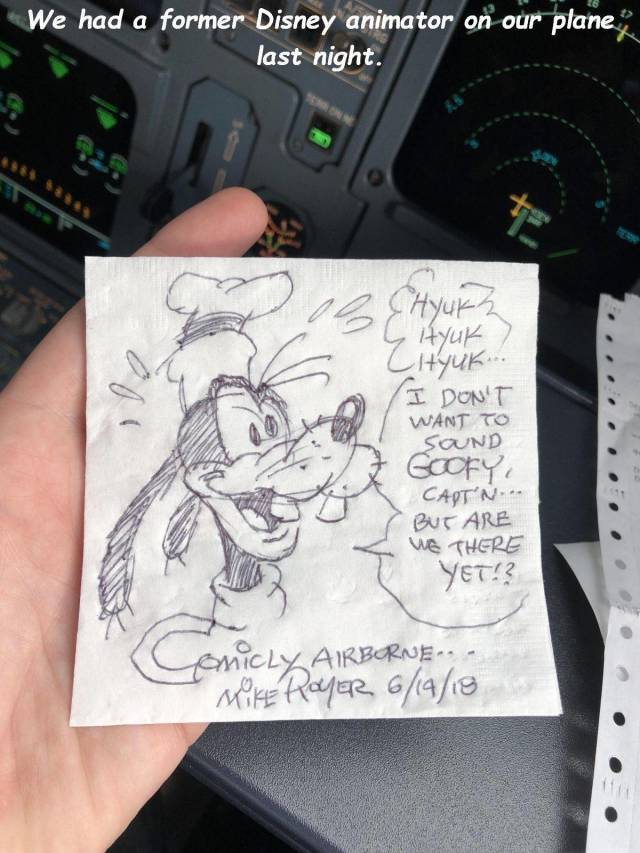 We had a former Disney animator on our plane
last night.
HYUK
HYUK
HYUK...
I DON'T
WANT TO
SOUND
GOOFY,
CAPT'N...
BUT ARE
WE THERE
YET!?
COMICLY AIRBORNE...
MIKE ROYER 6/19/18